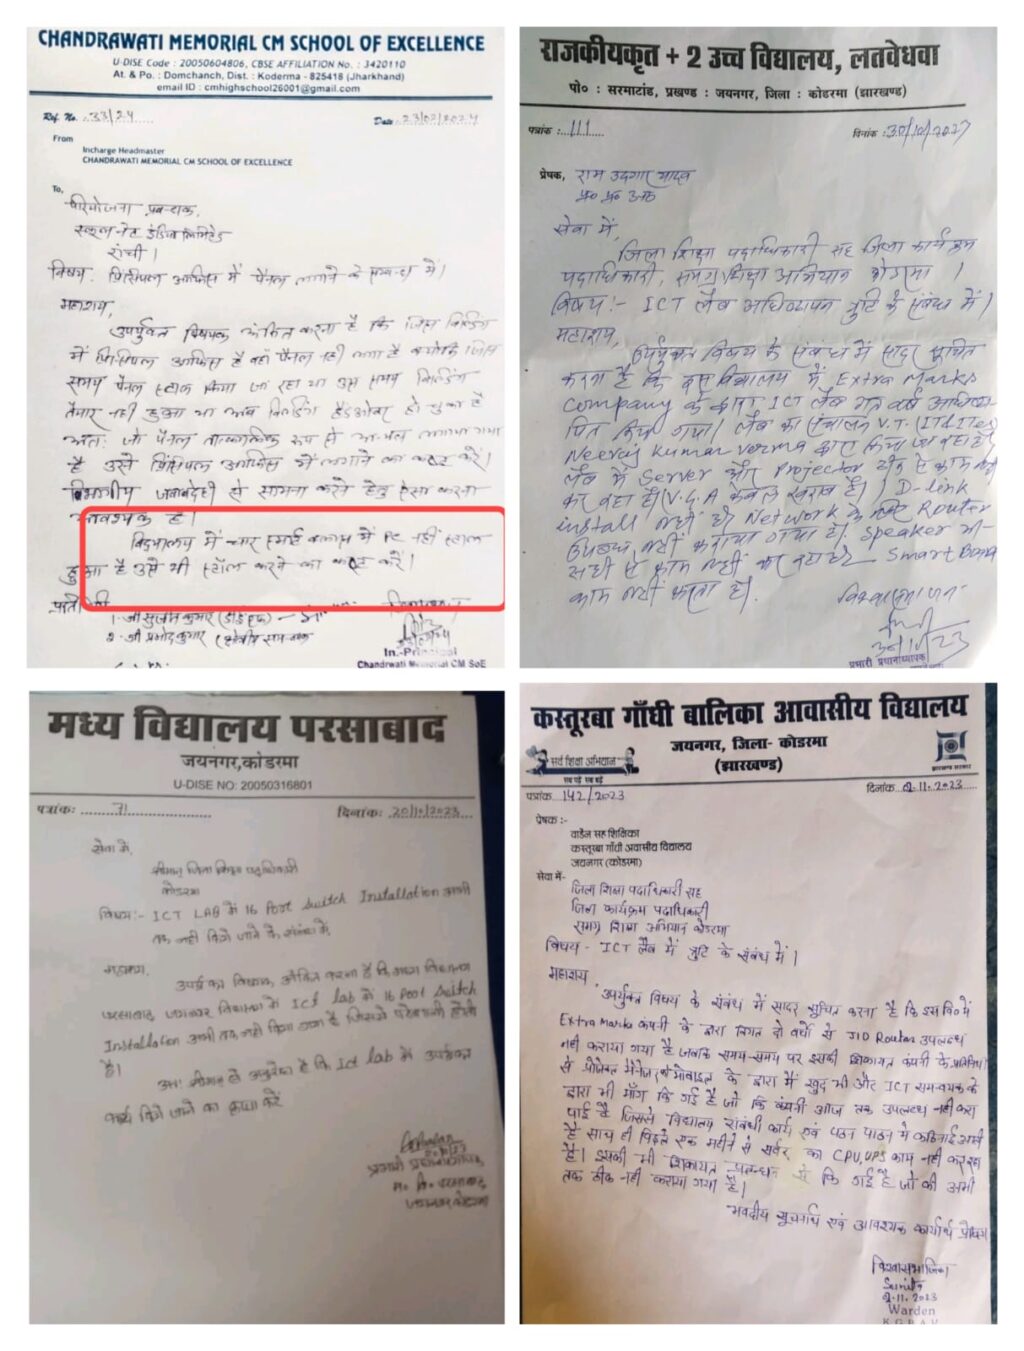 CHANDRAWATI MEMORIAL CM SCHOOL OF EXCELLENCE
U-DISE Code : 20050604806, CBSE AFFILIATION No. : 3420110
At. & Po. : Domchanch, Dist. : Koderma - 825418 (Jharkhand)
email ID : cmhighschool26001@gmail.com
Ref. No. 33/24 Date : 23/02/2024
From
Incharge Headmaster
CHANDRAWATI MEMORIAL CM SCHOOL OF EXCELLENCE
To,
परियोजना प्रबन्धक,
स्कूल नेट इंडिया लिमिटेड
रांची।
विषय: प्रिंसिपल आफिस में पैनल लगाने के सम्बन्ध में।
महाशय,
उपर्युक्त विषयक अंकित करना है कि जिस बिल्डिंग
में प्रिंसिपल आफिस है वहाँ पैनल नहीं लगा है क्योंकि जिस
समय पैनल स्टॉल किया जा रहा था उस समय बिल्डिंग
तैयार नही हुआ था अब बिल्डिंग हैंडओवर हो चुका है
अतः जो पैनल तात्कालिक रूप से लगाया गया
है उसे प्रिंसिपल आफिस में लगाने का कष्ट करें।
विभागीय जवाबदेही से सामना करने हेतु ऐसा करना
आवश्यक है।
विद्यालय में चार स्मार्ट क्लास में PC नहीं स्टॉल
हुआ है उसे भी स्टॉल करने का कष्ट करें।
In.-Principal
Chandrawati Memorial CM SoE
राजकीयकृत + 2 उच्च विद्यालय, लतवेधवा
पो० : सरमाटांड, प्रखण्ड : जयनगर, जिला : कोडरमा (झारखण्ड)
पत्रांक : 111 दिनांक :
प्रेषक, राम उदगार यादव
सेवा में,
जिला शिक्षा पदाधिकारी सह जिला कार्यक्रम
पदाधिकारी, समग्र शिक्षा अभियान कोडरमा ।
विषय:- ICT लैब अधिष्ठापन त्रुटि के संबंध में।
महाशय,
उपर्युक्त विषय के संबंध में सादर सूचित
करना है कि इस विद्यालय में Extra Marks
Company के द्वारा ICT लैब गत वर्ष अधिष्ठा-
पित किया गया। लैब का संचालन V.T. (IT&ITes)
Neeraj Kumar Verma द्वारा किया जा रहा है।
लैब में Server और Projector ठीक से काम नहीं
कर रहा है। (V.G.A केबल खराब है।) D-link
install नहीं है। Network के लिए Router
उपलब्ध नहीं कराया गया है। Speaker भी
सही से काम नहीं कर रहा है। Smart Board
काम नहीं करता है।
प्रभारी प्रधानाध्यापक
मध्य विद्यालय परसाबाद
जयनगर,कोडरमा
U-DISE NO: 20050316801
पत्रांक: 71 दिनांक: 20/10/2023
सेवा में,
श्रीमान् जिला शिक्षा पदाधिकारी
कोडरमा
विषय:- ICT LAB में 16 Poot Switch Installation अभी
तक नहीं किये जाने के संबंध में.
महाशय,
उपर्युक्त विषयक, अंकित करना है कि मध्य विद्यालय
परसाबाद, जयनगर में ICT lab में 16 Poot Switch
Installation अभी तक नहीं किया गया है जिससे परेशानी होती
है।
अतः श्रीमान् से अनुरोध है कि Ict lab में उपर्युक्त
कार्य किये जाने का कृपा करें
कस्तूरबा गाँधी बालिका आवासीय विद्यालय
जयनगर, जिला- कोडरमा
(झारखण्ड)
सर्व शिक्षा अभियान
सब पढ़ें सब बढ़ें
झारखण्ड सरकार
पत्रांक 142/2023 दिनांक 2.11.2023
प्रेषक :-
वार्डेन सह शिक्षिका
कस्तूरबा गाँधी आवासीय विद्यालय
जयनगर (कोडरमा)
सेवा में-
जिला शिक्षा पदाधिकारी सह
जिला कार्यक्रम पदाधिकारी
समग्र शिक्षा अभियान कोडरमा
विषय - ICT लैब में त्रुटि के संबंध में।
महाशय,
उपर्युक्त विषय के संबंध में सादर सूचित करना है कि इस वि० में
Extra Marks कंपनी के द्वारा विगत दो वर्षो से JIO Router उपलब्ध
नहीं कराया गया है जबकि समय-समय पर इसकी शिकायत कंपनी के प्रतिनिधि
से प्रोजेक्ट मैनेजर मोबाइल के द्वारा मैं खुद भी और ICT समन्वयक के
द्वारा भी माँग कि गई है जो कि कंपनी आज तक उपलब्ध नहीं करा
पाई है जिससे विद्यालय संबंधी कार्य एवं पठन पाठन में कठिनाई आती
है। साथ ही पिछले एक महीने से सर्वर का CPU, UPS काम नहीं कर रहा
है। इसकी भी शिकायत प्रबन्धन से कि गई है जो की अभी
तक ठीक नहीं कराया गया है।
भवदीय सूचनार्थ एवं आवश्यक कार्यार्थ प्रेषित
विश्वासभाजिका
Sunita
2.11.2023
Warden